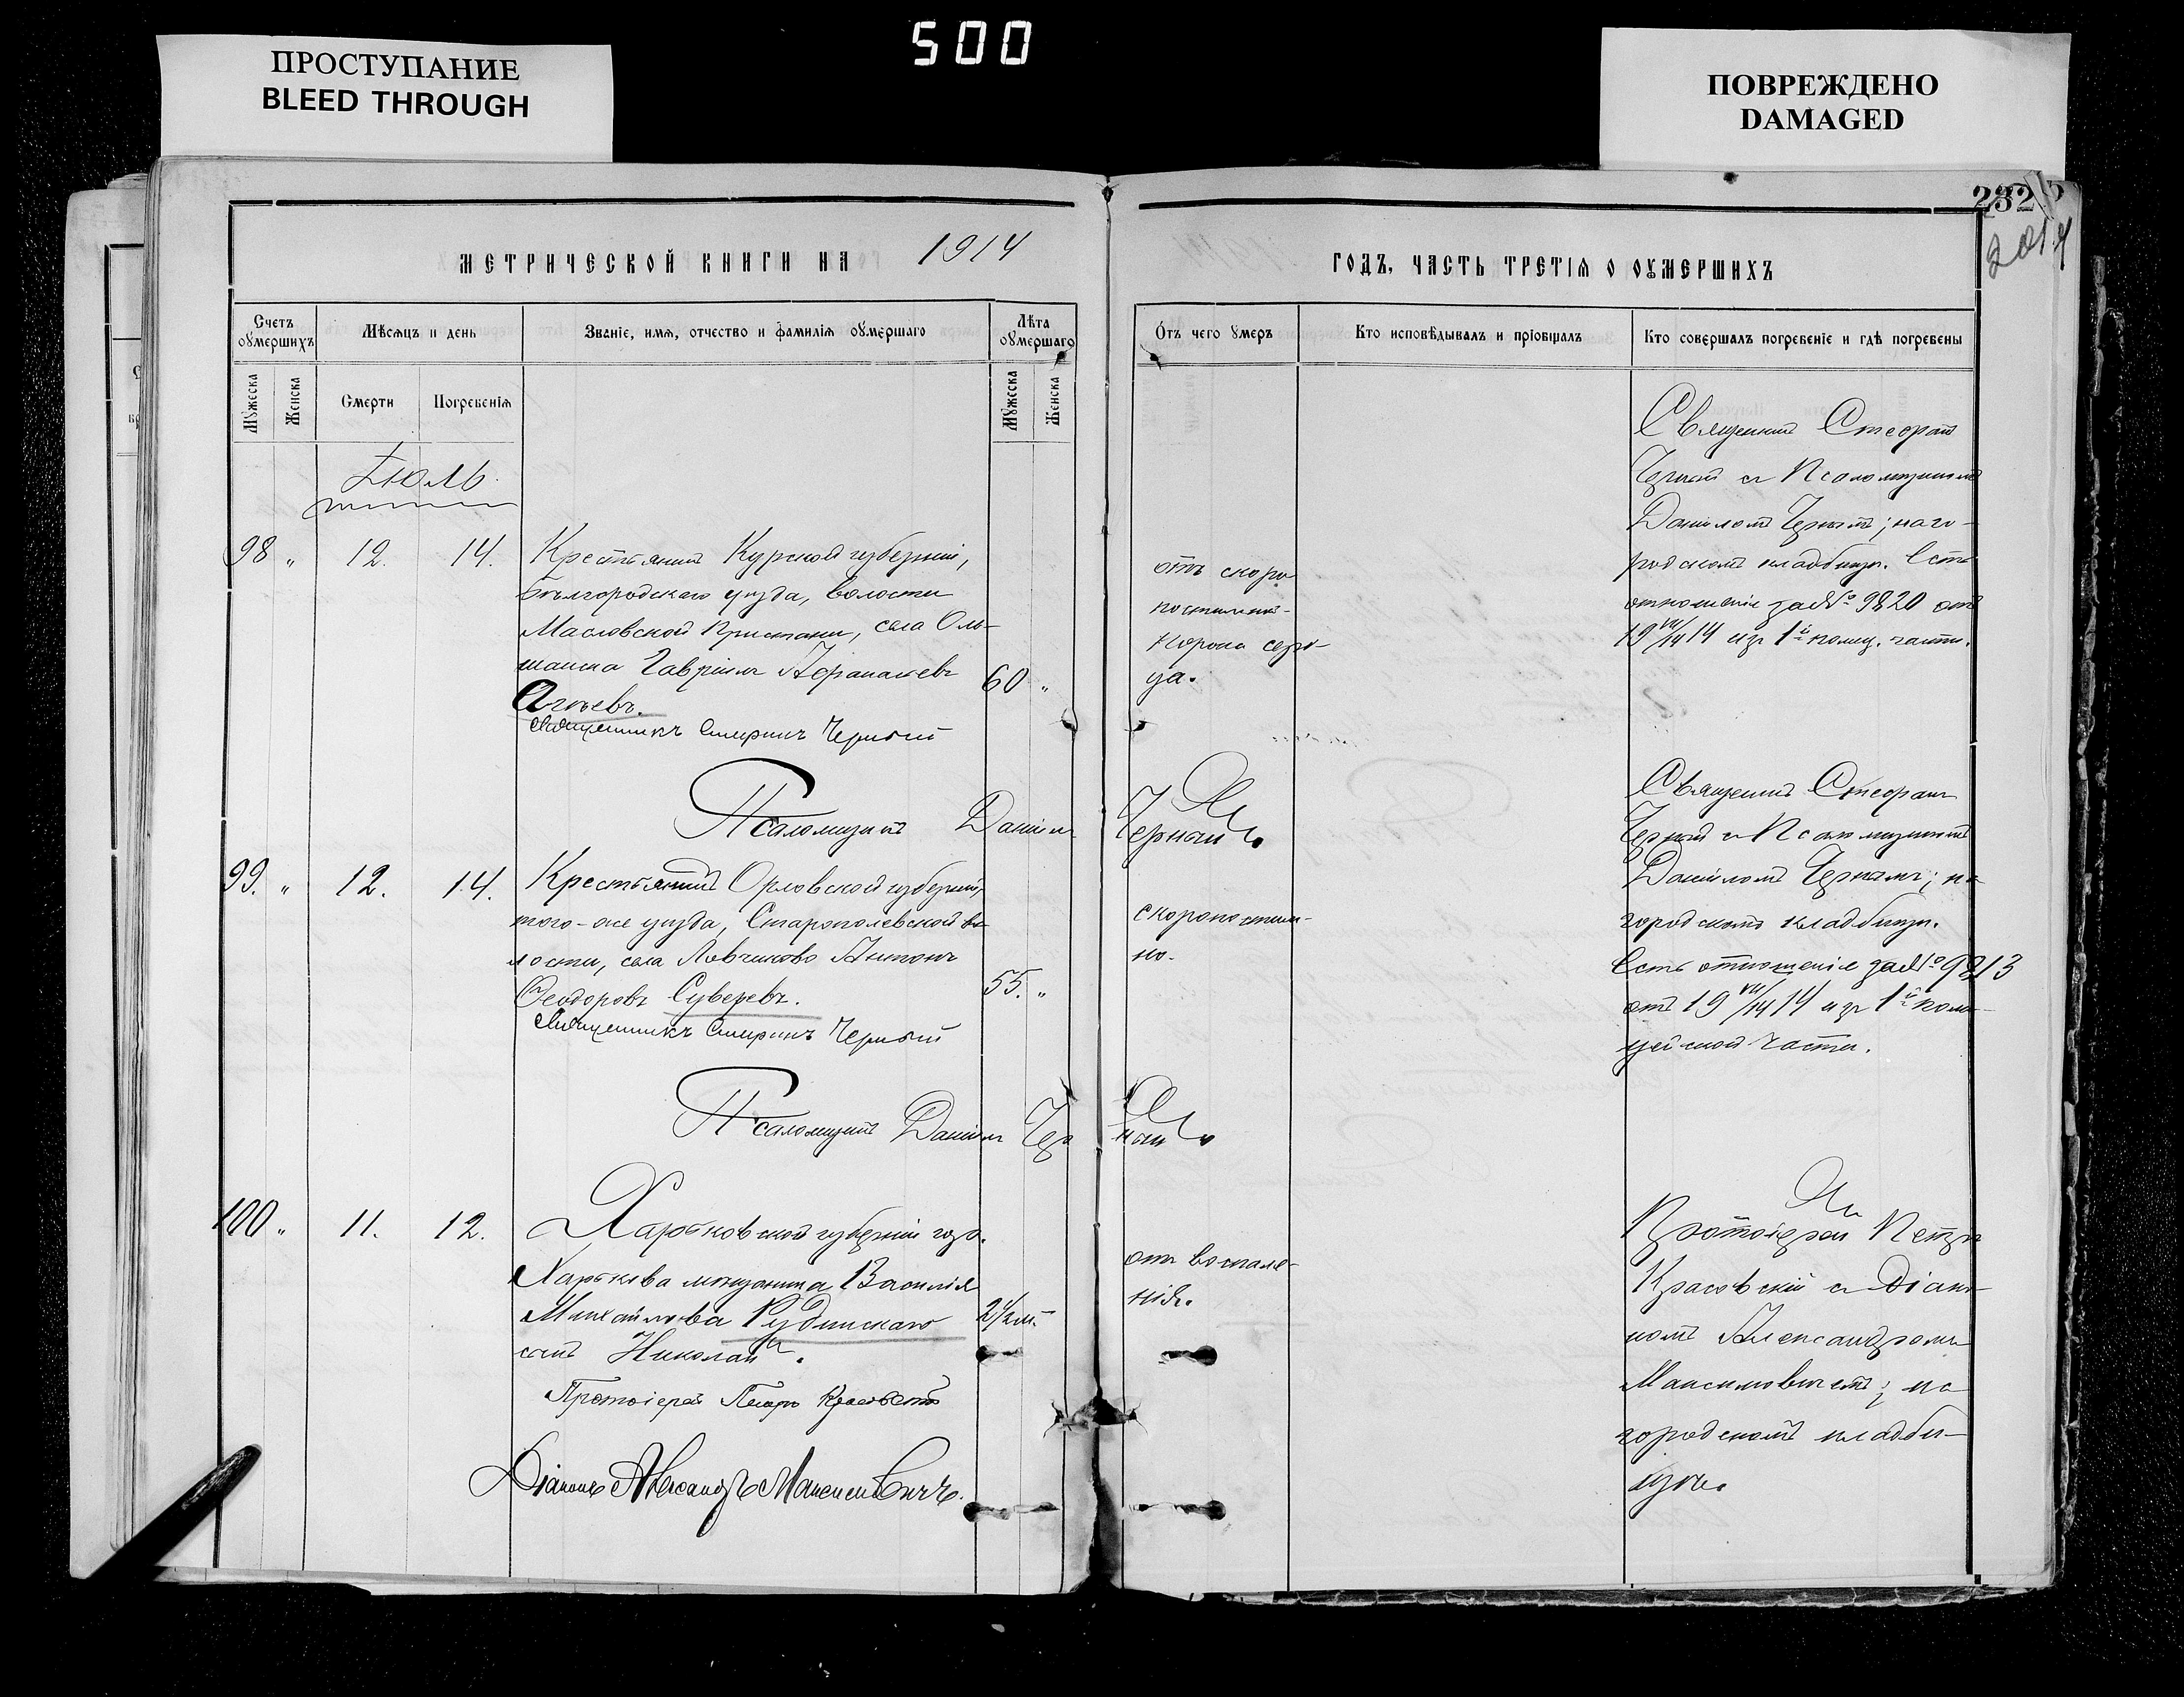 500
ПРОСТУПАНИЕ
BLEED THROUGH
ПОВРЕЖДЕНО
DAMAGED
232
201
МЕТРИЧЕСКОЙ КНИГИ НА 1914
ГОДЪ, ЧАСТЬ ТРЕТІЯ О ОУМЕРШИХЪ
Счетъ оумершихъ
Мѣсяцъ и день
Званіе, имя, отчество и фамилія оумершаго
Лѣта оумершаго
Отъ чего умеръ
Кто исповѣдывалъ и пріобщалъ
Кто совершалъ погребеніе и гдѣ погребены
Мужеска
Женска
Смерти
Погребенія
Мужеска
Женска
Іюль
98 " 12. 14.
Крестьянинъ Курской губерніи,
Бѣлгородскаго уѣзда, волости
Масловской Пристани, села Оль-
шанка Гавріилъ
60 "
Священникъ Стефанъ Черный
Псаломщикъ Даніилъ Черный
отъ скоро
постижн-
сердца.
Священникъ Стефанъ
Черный съ Псаломщикомъ
Даніиломъ Чернымъ; на го-
родскомъ кладбищѣ. Есть
отношеніе за № 9820 отъ
19 VII/14 14 изъ 1й полиц. части.
99. " 12. 14.
Крестьянинъ Орловской губерніи,
того-же уѣзда, Старополевской во-
лости, села Ловчиково Антонъ
Феодоровъ Суверевъ.
55. "
Священникъ Стефанъ Черный
Псаломщикъ Даніилъ Черный
скоропостиж-
но.
Священникъ Стефанъ
Черный съ Псаломщикомъ
Даніиломъ Чернымъ; на
городскомъ кладбищѣ.
Есть отношеніе за № 9813
отъ 19 VII/14 14 изъ 1й поли-
цейской части.
100 " 11. 12.
Харьковской губерніи гор.
Харькова мѣщанина Василія
Михайлова Рудинскаго
сынъ Николай.
2 1/2 м.
Протоіерей Петръ Красовскій
Діаконъ Александръ Максимовичъ.
отъ воспале-
нія.
Протоіерей Петръ
Красовскій съ Діако-
номъ Александромъ
Максимовичемъ; на
городскомъ кладби-
щѣ.